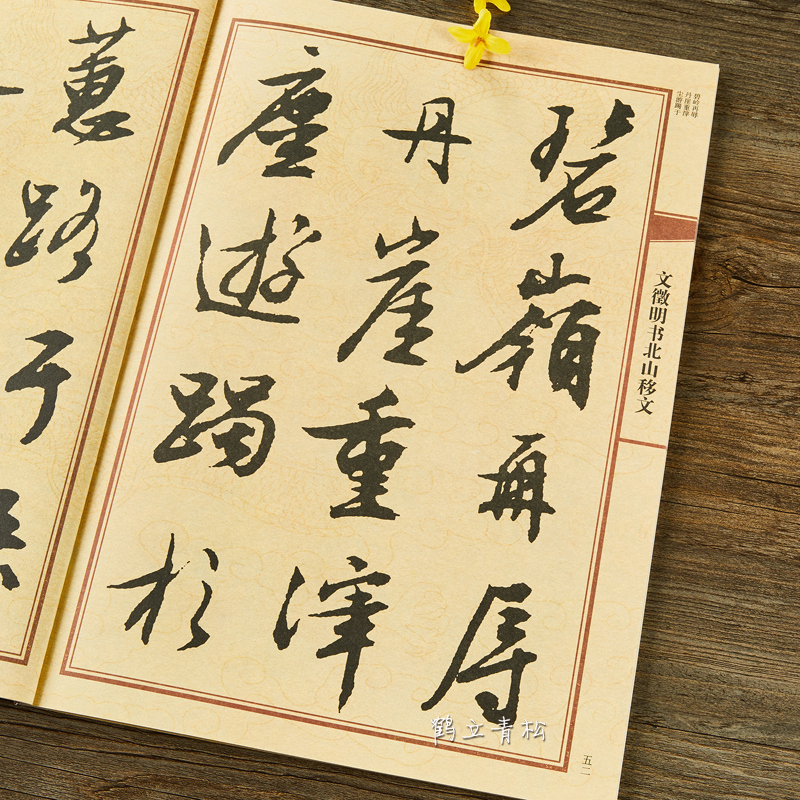 碧岭再辱
丹崖重滓
尘游躅于
文徵明书北山移文
碧嶺再辱
丹崖重滓
塵遊躅於
蕙路
五二
鹤立青松